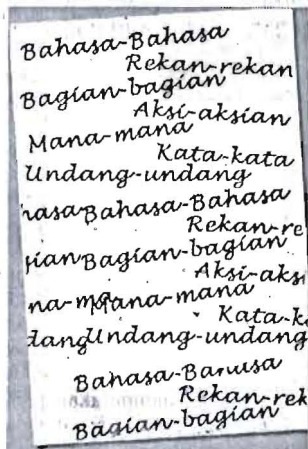 Bahasa-Bahasa
Rekan-rekan
Bagian-bagian
Aksi-aksian
Mana-mana
Kata-kata
Undang-undang
hasaBahasa-Bahasa
Rekan-re
gianBagian-bagian
Aksi-aksi
na-mMana-mana
Kata-k
dangUndang-undang
Bahasa-Bahasa
Rekan-rek
Bagian-bagian